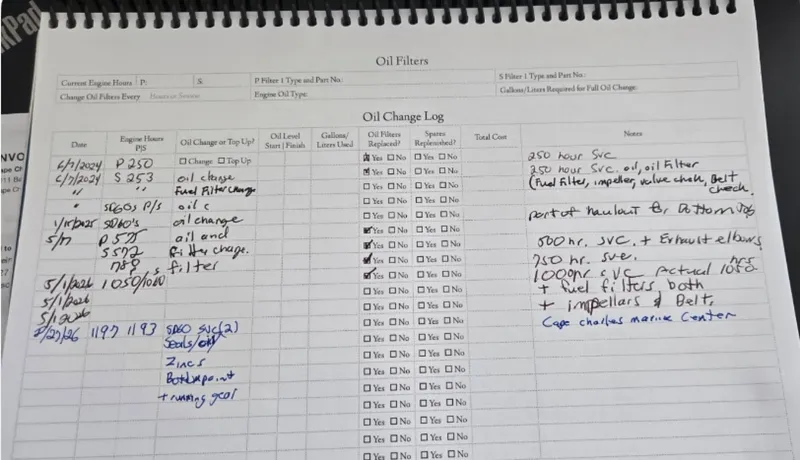 NVO
Oil Filters
Current Engine Hours P: S: P Filter 1 Type and Part No.: S Filter 1 Type and Part No.:
Change Oil Filters Every Hours or Season Engine Oil Type: Gallons/Liters Required for Full Oil Change:
Oil Change Log
Date Engine Hours P/S Oil Change or Top Up? Oil Level Start | Finish Gallons/ Liters Used Oil Filters Replaced? Spares Replenished? Total Cost Notes
6/7/2024 P 250 ☐ Change ☐ Top Up ☒ Yes ☐ No ☐ Yes ☐ No 250 hour Svc
6/7/2024 S 253 oil change ☒ Yes ☐ No ☐ Yes ☐ No 250 hour SVC. oil, oil Filter
" " " " Fuel Filter Change ☐ Yes ☐ No ☐ Yes ☐ No (Fuel Filter, impeller, valve check, Belt
check.
" SD60s P/S oil c ☐ Yes ☐ No ☐ Yes ☐ No
1/15/2025 SD60's oil change ☒ Yes ☐ No ☐ Yes ☐ No part of haulout for Bottom Job
5/17 P 575 oil and ☑ Yes ☐ No ☐ Yes ☐ No
S 572 filter change. ☑ Yes ☐ No ☐ Yes ☐ No 500 hr. SVC. + Exhaust elbows
filter ☑ Yes ☐ No ☐ Yes ☐ No 750 hr. Sve.
5/1/2026 1050/1060 ☑ Yes ☐ No ☐ Yes ☐ No 1000hr SVC Actual 1050 hrs
5/1/2026 ☐ Yes ☐ No ☐ Yes ☐ No + fuel filters both
5/1/2026 ☐ Yes ☐ No ☐ Yes ☐ No + impellars & Belt,
/27/26 1197 1193 SD60 SVC(2) ☐ Yes ☐ No ☐ Yes ☐ No Cape Charles Marine Center
Seals/oil ☐ Yes ☐ No ☐ Yes ☐ No
Zincs ☐ Yes ☐ No ☐ Yes ☐ No
Bottom paint ☐ Yes ☐ No ☐ Yes ☐ No
+ running gear ☐ Yes ☐ No ☐ Yes ☐ No
☐ Yes ☐ No ☐ Yes ☐ No
☐ Yes ☐ No ☐ Yes ☐ No
☐ Yes ☐ No ☐ Yes ☐ No